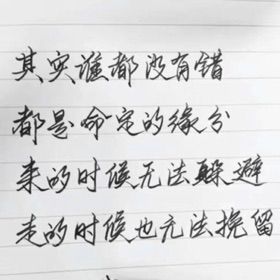 其实谁都没有错
都是命定的缘分
来的时候无法躲避
走的时候也无法挽留